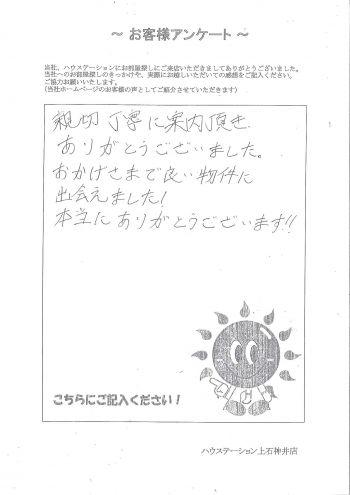 ～ お客様アンケート ～
当社、ハウステーションにお部屋探しにご来店いただきましてありがとうございました。
当社へのお部屋探しのきっかけや、実際にお越しいただいての感想をご記入ください。
ご協力お願いいたします。
(当社ホームページのお客様の声としてご紹介させていただきます)
親切丁寧に案内頂き
ありがとうございました。
おかげさまで良い物件に
出会えました!
本当にありがとうございます!!
こちらにご記入ください!
ハウステーション上石神井店